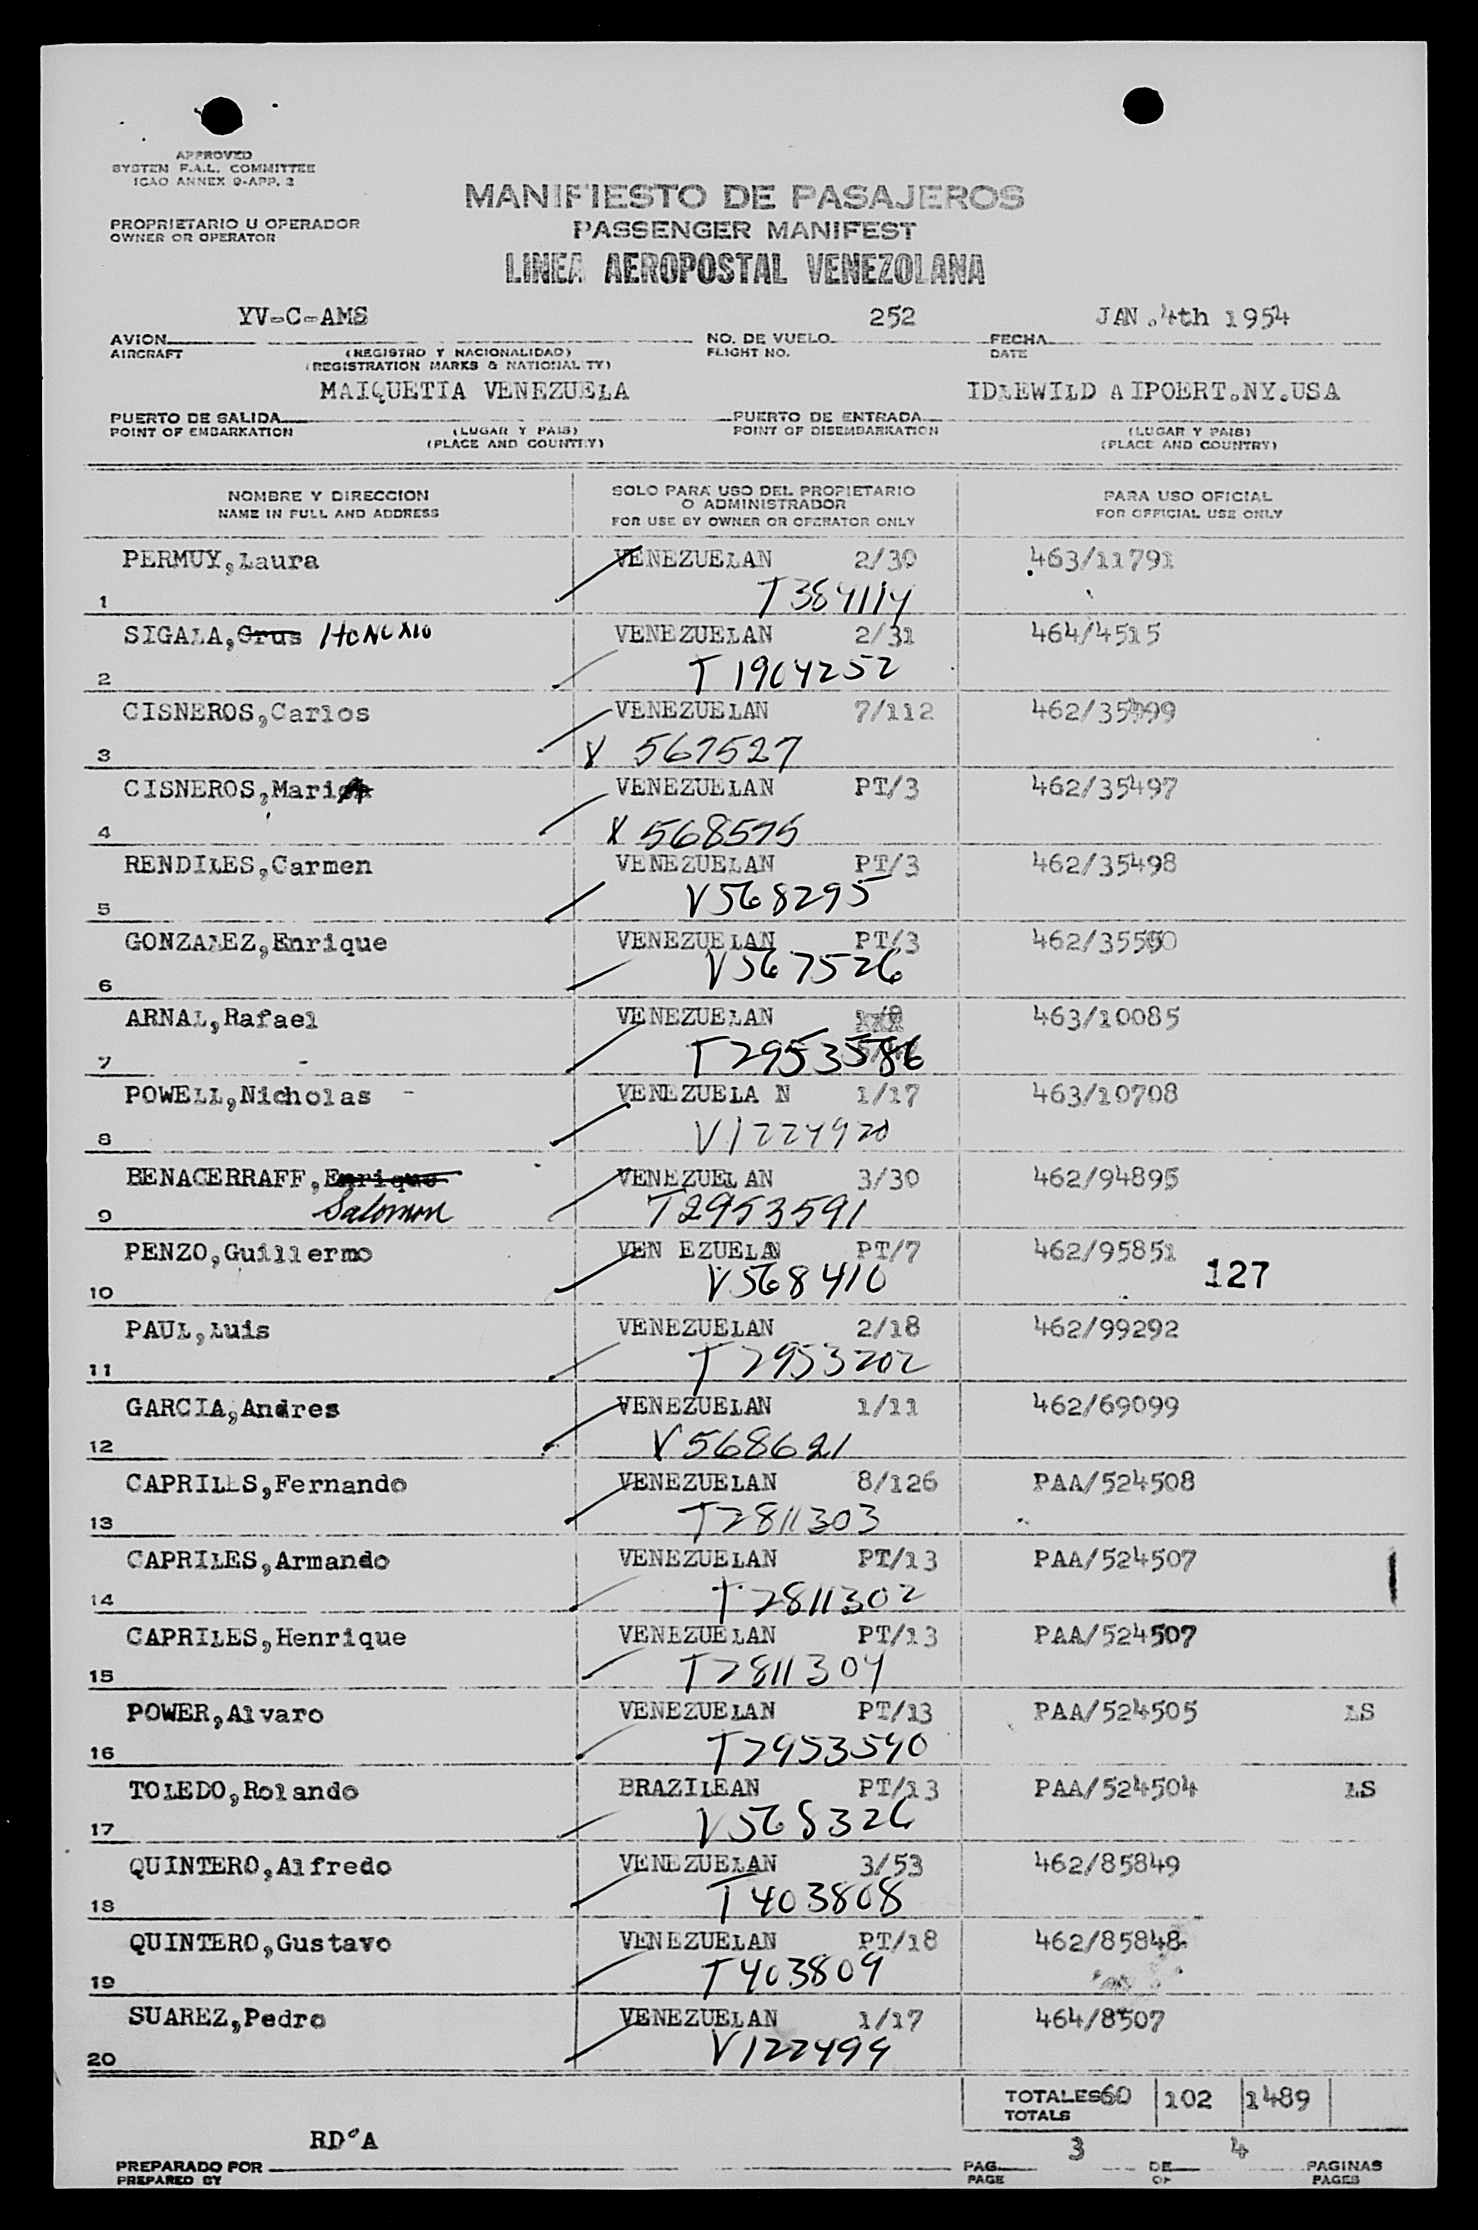 APPROVED
SYSTEM F.A.L. COMMITTEE
ICAO ANNEX 9-APP. 2
MANIFIESTO DE PASAJEROS
PROPRIETARIO U OPERADOR
OWNER OR OPERATOR
PASSENGER MANIFEST
LINEA AEROPOSTAL VENEZOLANA
YV-C-AMS 252 JAN.4th 1954
AVION NO. DE VUELO FECHA
AIRCRAFT (REGISTRO Y NACIONALIDAD) FLIGHT NO. DATE
(REGISTRATION MARKS & NATIONALITY)
MAIQUETIA VENEZUELA IDLEWILD AIPOERT.NY.USA
PUERTO DE SALIDA PUERTO DE ENTRADA
POINT OF EMBARKATION (LUGAR Y PAIS) POINT OF DISEMBARKATION (LUGAR Y PAIS)
(PLACE AND COUNTRY) (PLACE AND COUNTRY)
NOMBRE Y DIRECCION SOLO PARA USO DEL PROPIETARIO O ADMINISTRADOR PARA USO OFICIAL
NAME IN FULL AND ADDRESS FOR USE BY OWNER OR OPERATOR ONLY FOR OFFICIAL USE ONLY
PERMUY,Laura VENEZUELAN 2/30 463/11791
1 T384114
SIGALA,Crus VENEZUELAN 2/31 464/4515
2 T1904252
CISNEROS,Carlos VENEZUELAN 7/112 462/35499
3 V 567527
CISNEROS,Maria VENEZUELAN PT/3 462/35497
4 V 568575
RENDILES,Carmen VENEZUELAN PT/3 462/35498
5 V568295
GONZALEZ,Enrique VENEZUELAN PT/3 462/35500
6 V567526
ARNAL,Rafael VENEZUELAN 463/10085
7 T2953586
POWELL,Nicholas - VENEZUELA N 1/17 463/10708
8 V1224920
BENACERRAFF,Enrique VENEZUELAN 3/30 462/94895
9 Salomon T2953591
PENZO,Guillermo VEN EZUELAN PT/7 462/95851
10 V568410 127
PAUL,Luis VENEZUELAN 2/18 462/99292
11 T2953202
GARCIA,Andres VENEZUELAN 1/11 462/69099
12 V568621
CAPRILES,Fernando VENEZUELAN 8/126 PAA/524508
13 T2811303
CAPRILES,Armando VENEZUELAN PT/13 PAA/524507
14 T2811302
CAPRILES,Henrique VENEZUELAN PT/13 PAA/524507
15 T2811304
POWER,Alvaro VENEZUELAN PT/13 PAA/524505 LS
16 T2953590
TOLEDO,Rolando BRAZILEAN PT/13 PAA/524504 LS
17 V568326
QUINTERO,Alfredo VENEZUELAN 3/53 462/85849
18 T403808
QUINTERO,Gustavo VENEZUELAN PT/18 462/85848
19 T403809
SUAREZ,Pedro VENEZUELAN 1/17 464/8507
20 V122499
TOTALES 60 102 1489
TOTALS
RD°A 3 4
PREPARADO POR PAG. DE PAGINAS
PREPARED BY PAGE OF PAGES